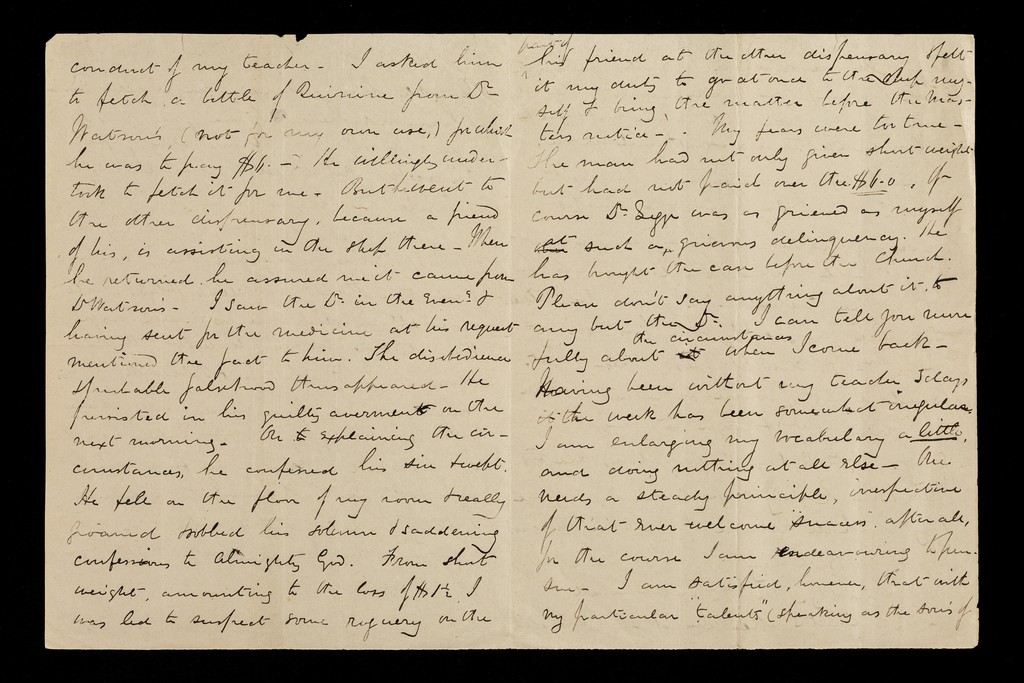 conduct of my teacher - I asked him
to fetch a bottle of Quinine from Dr
Watson's, (not for my own use,) for which
he was to pay $6. - He willingly under-
took to fetch it for me. But he went to
the other dispensary, because a friend
of his, is assisting in the shop there - When
he returned he assured me it came from
Dr Watson's - I saw the Dr. in the Eveng &
having sent for the medicine at his request
mentioned the fact to him. The disobedience
& probable falsehood thus appeared - He
persisted in his guilty averment on the
next morning. On explaining the cir-
cumstances, he confessed his sin & wept.
He fell on the floor of my room & really
groaned & sobbed his solemn & saddening
confessions to Almighty God. From short
weight, amounting to the loss of $1½ I
was led to suspect some roguery on the
part of
his friend at the other dispensary & felt
it my duty to go at once to the shop my-
self & bring the matter before the Mas-
ters notice - . My fears were too true -
The man had not only given short weight
but had not paid over the $6.0, Of
course Dr. was as grieved as myself
at such a grievous delinquency. He
has brought the case before the Church.
Please don't say anything about it, to
any but the Dr. I can tell you more
the circumstances
fully about when I come back -
Having been without my teacher 3 days
the week has been somewhat irregular.
I am enlarging my vocabulary a little,
and doing nothing at all else - One
needs a steady principle, irrespective
of that ever welcome "success" after all,
for the course I am endeavouring to pur-
sue - I am satisfied, however, that with
my particular "talents" (speaking as the sons of